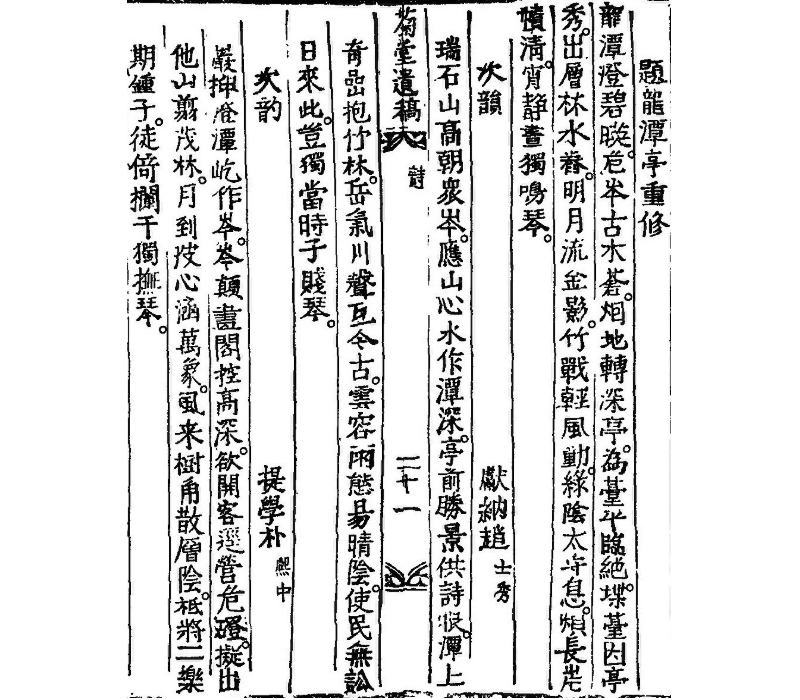 題龍潭亭重修
龍潭澄碧暎危岑古木蒼烟地轉深亭為臺平臨絶堞臺因亭
秀出層林水舂明月流金影竹戰輕風動綠陰太守息煩長占
債清宵静晝獨鳴琴
次韻 獻納趙士秀
瑞石山高朝衆岑應山心水作潭深亭前勝景供詩恨潭上
菊堂遺稿 詩 二十一
奇嵒抱竹林岳氣川聲互今古雲容雨態易晴陰使民無訟
日來此豈獨當時子賤琴
次韵 提學朴熙中
嚴抑澄潭屹作岑岑顛畫閣控高深欲開客逕營危磴擬出
他山翦茂林月到波心涵萬象風来樹角散層陰秪將二樂
期鍾子徒倚攔干獨撫琴